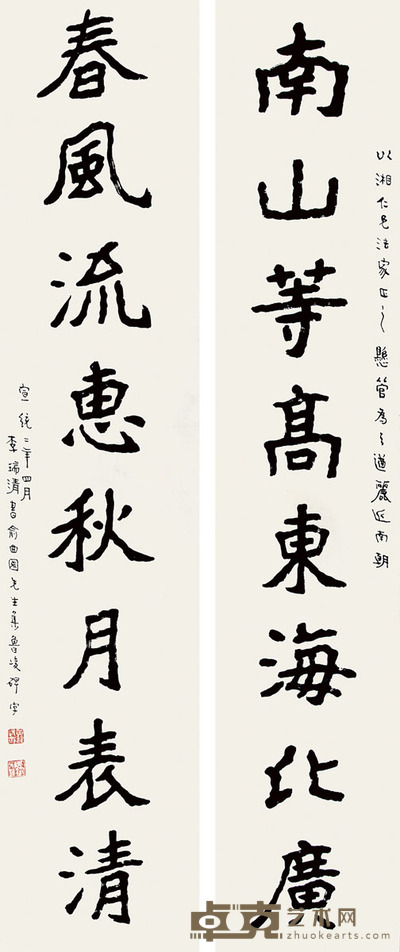 以湘仁兄法家正之懸管為之遒麗近南朝
南山等高東海北廣
春風流惠秋月表清
宣統二年四月
李瑞清書俞曲園先生集魯峻碑字
卓克艺术网
zhuokearts.com